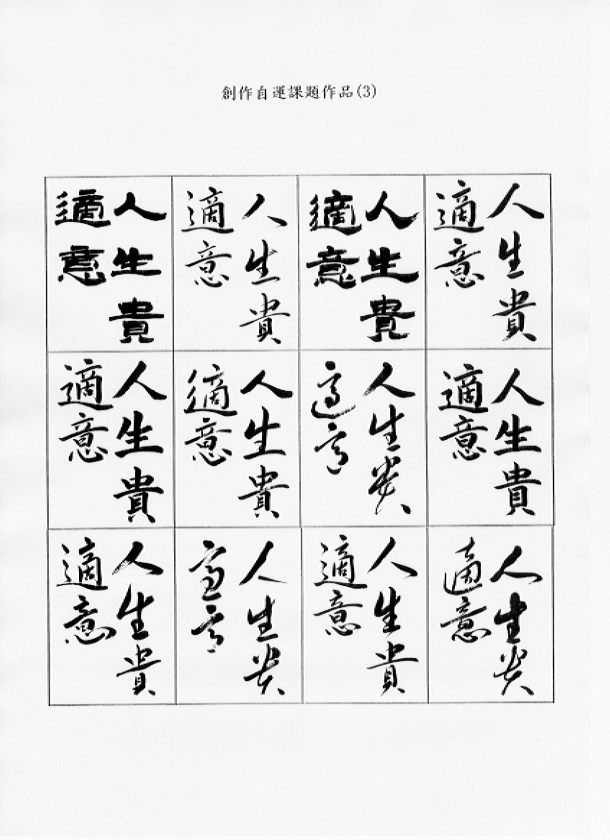 創作自運課題作品(3)
人生貴
適意
人生貴
適意
人生貴
適意
人生貴
適意
人生貴
適意
人生貴
適意
人生貴
適意
人生貴
適意
人生貴
適意
人生貴
適意
人生貴
適意
人生貴
適意